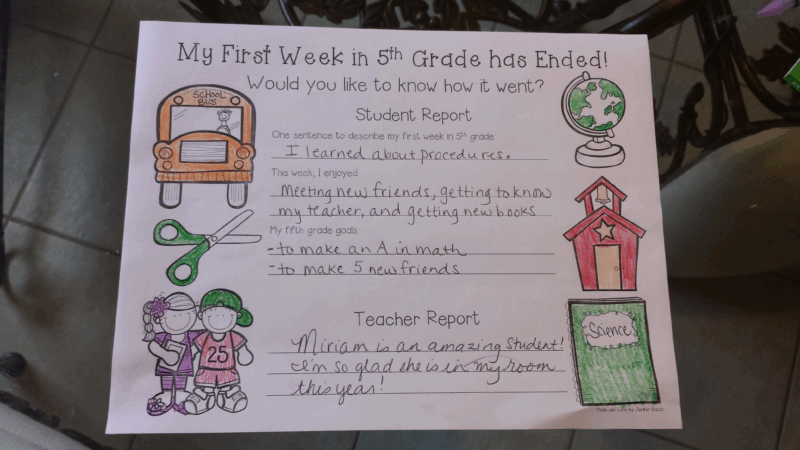 My First Week in 5th Grade has Ended!
Would you like to know how it went?
SCHOOL BUS
Student Report
One sentence to describe my first week in 5th grade
I learned about procedures.
This week, I enjoyed
Meeting new friends, getting to know
my teacher, and getting new books
My fifth grade goals
-to make an A in math
-to make 5 new friends
Teacher Report
Miriam is an amazing Student!
I'm so glad she is in my room
this year!
25
Science
Made with Love by